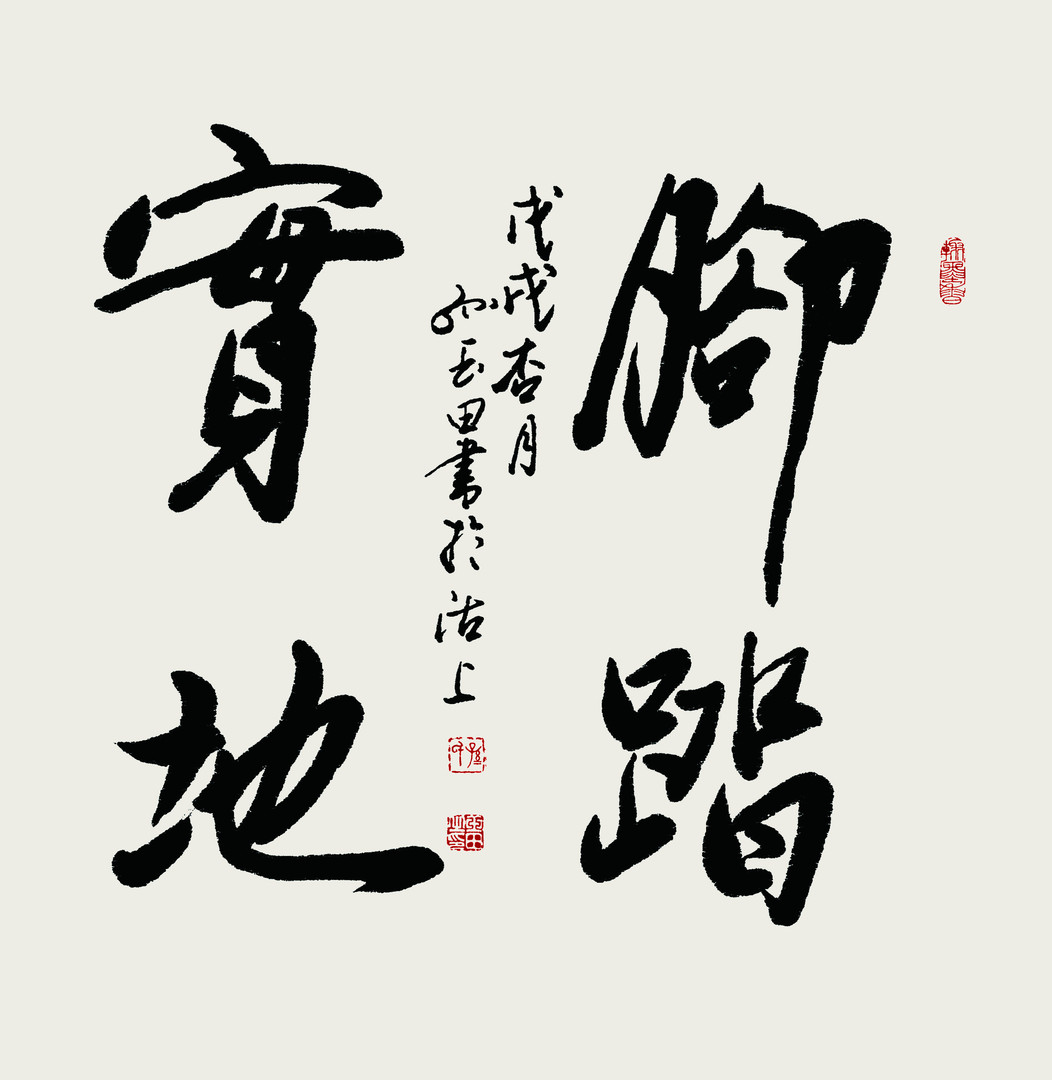 腳踏
實地
戊戌杏月
孫玉田書於沽上